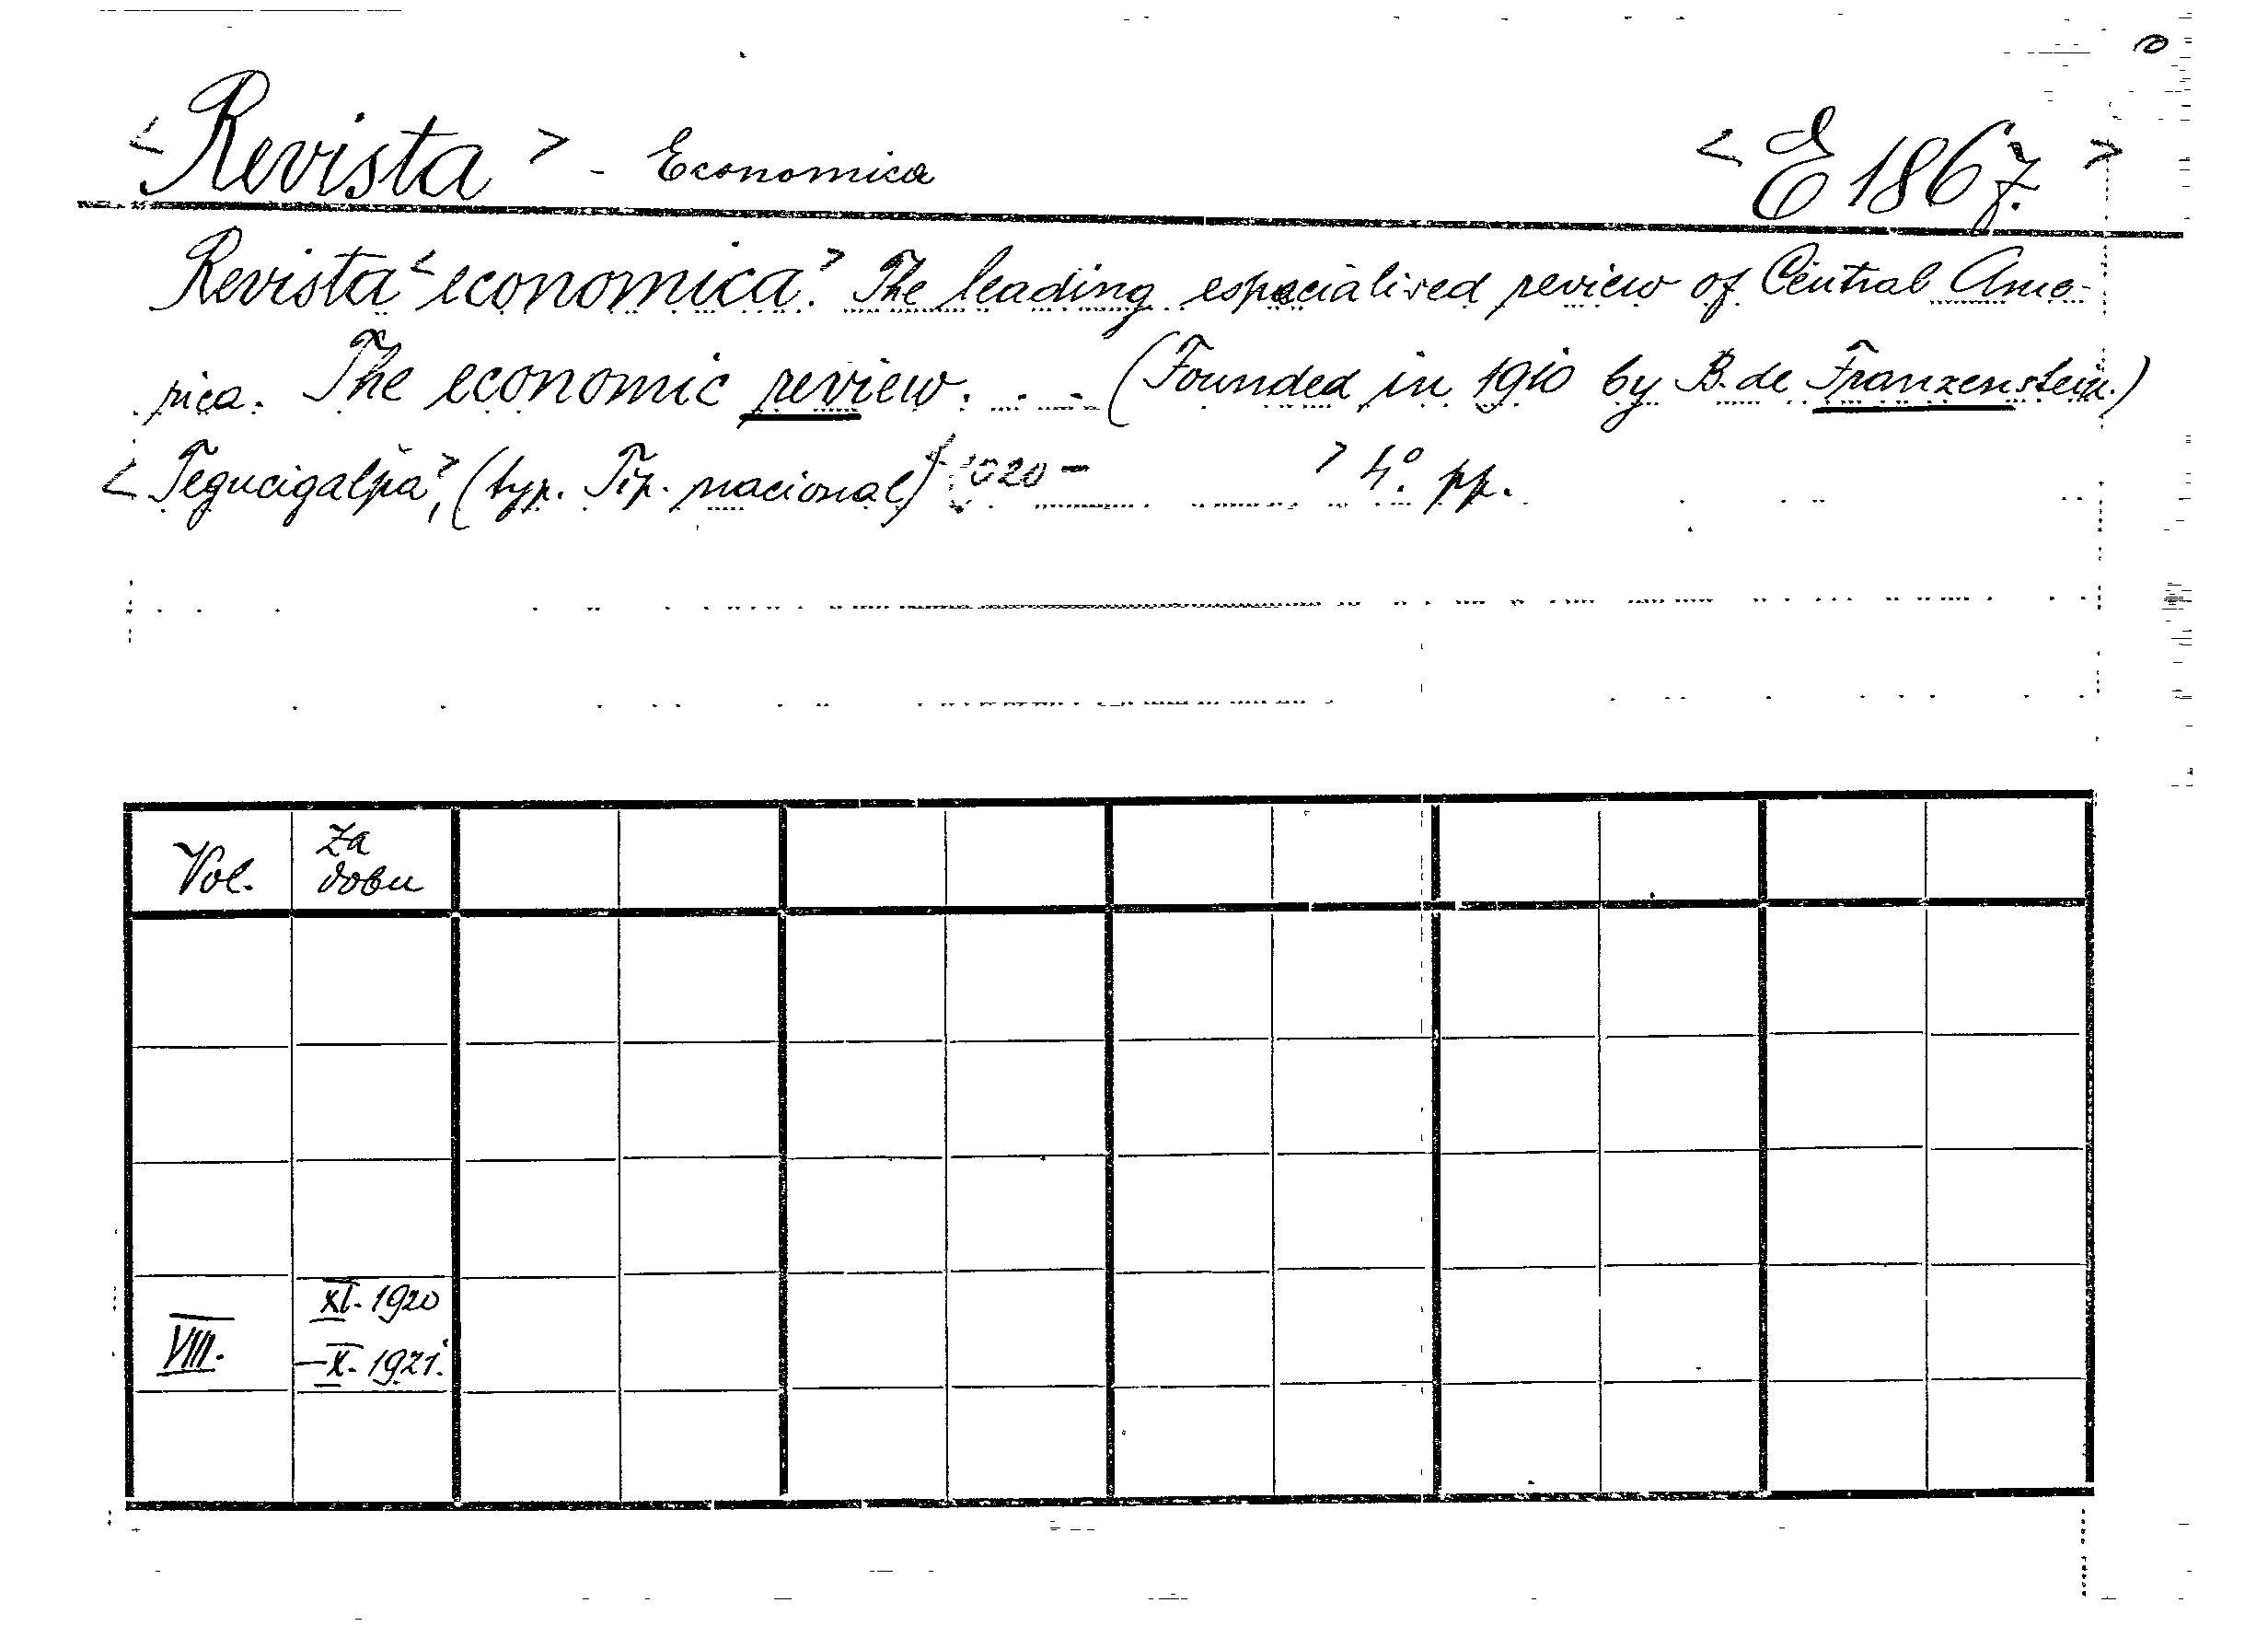 <Revista> - Economica <E 1867.>
Revista <economica.> The leading especialised review of Central Ame-
rica. The economic review. . - (Founded in 1910 by B. de Franzenstein.)
<Tegucigalpa>, (typ. Tip. nacional) 1920 - > 4°. pp.
Vol. Za
dobu
VIII. XI. 1920
—X. 1921.